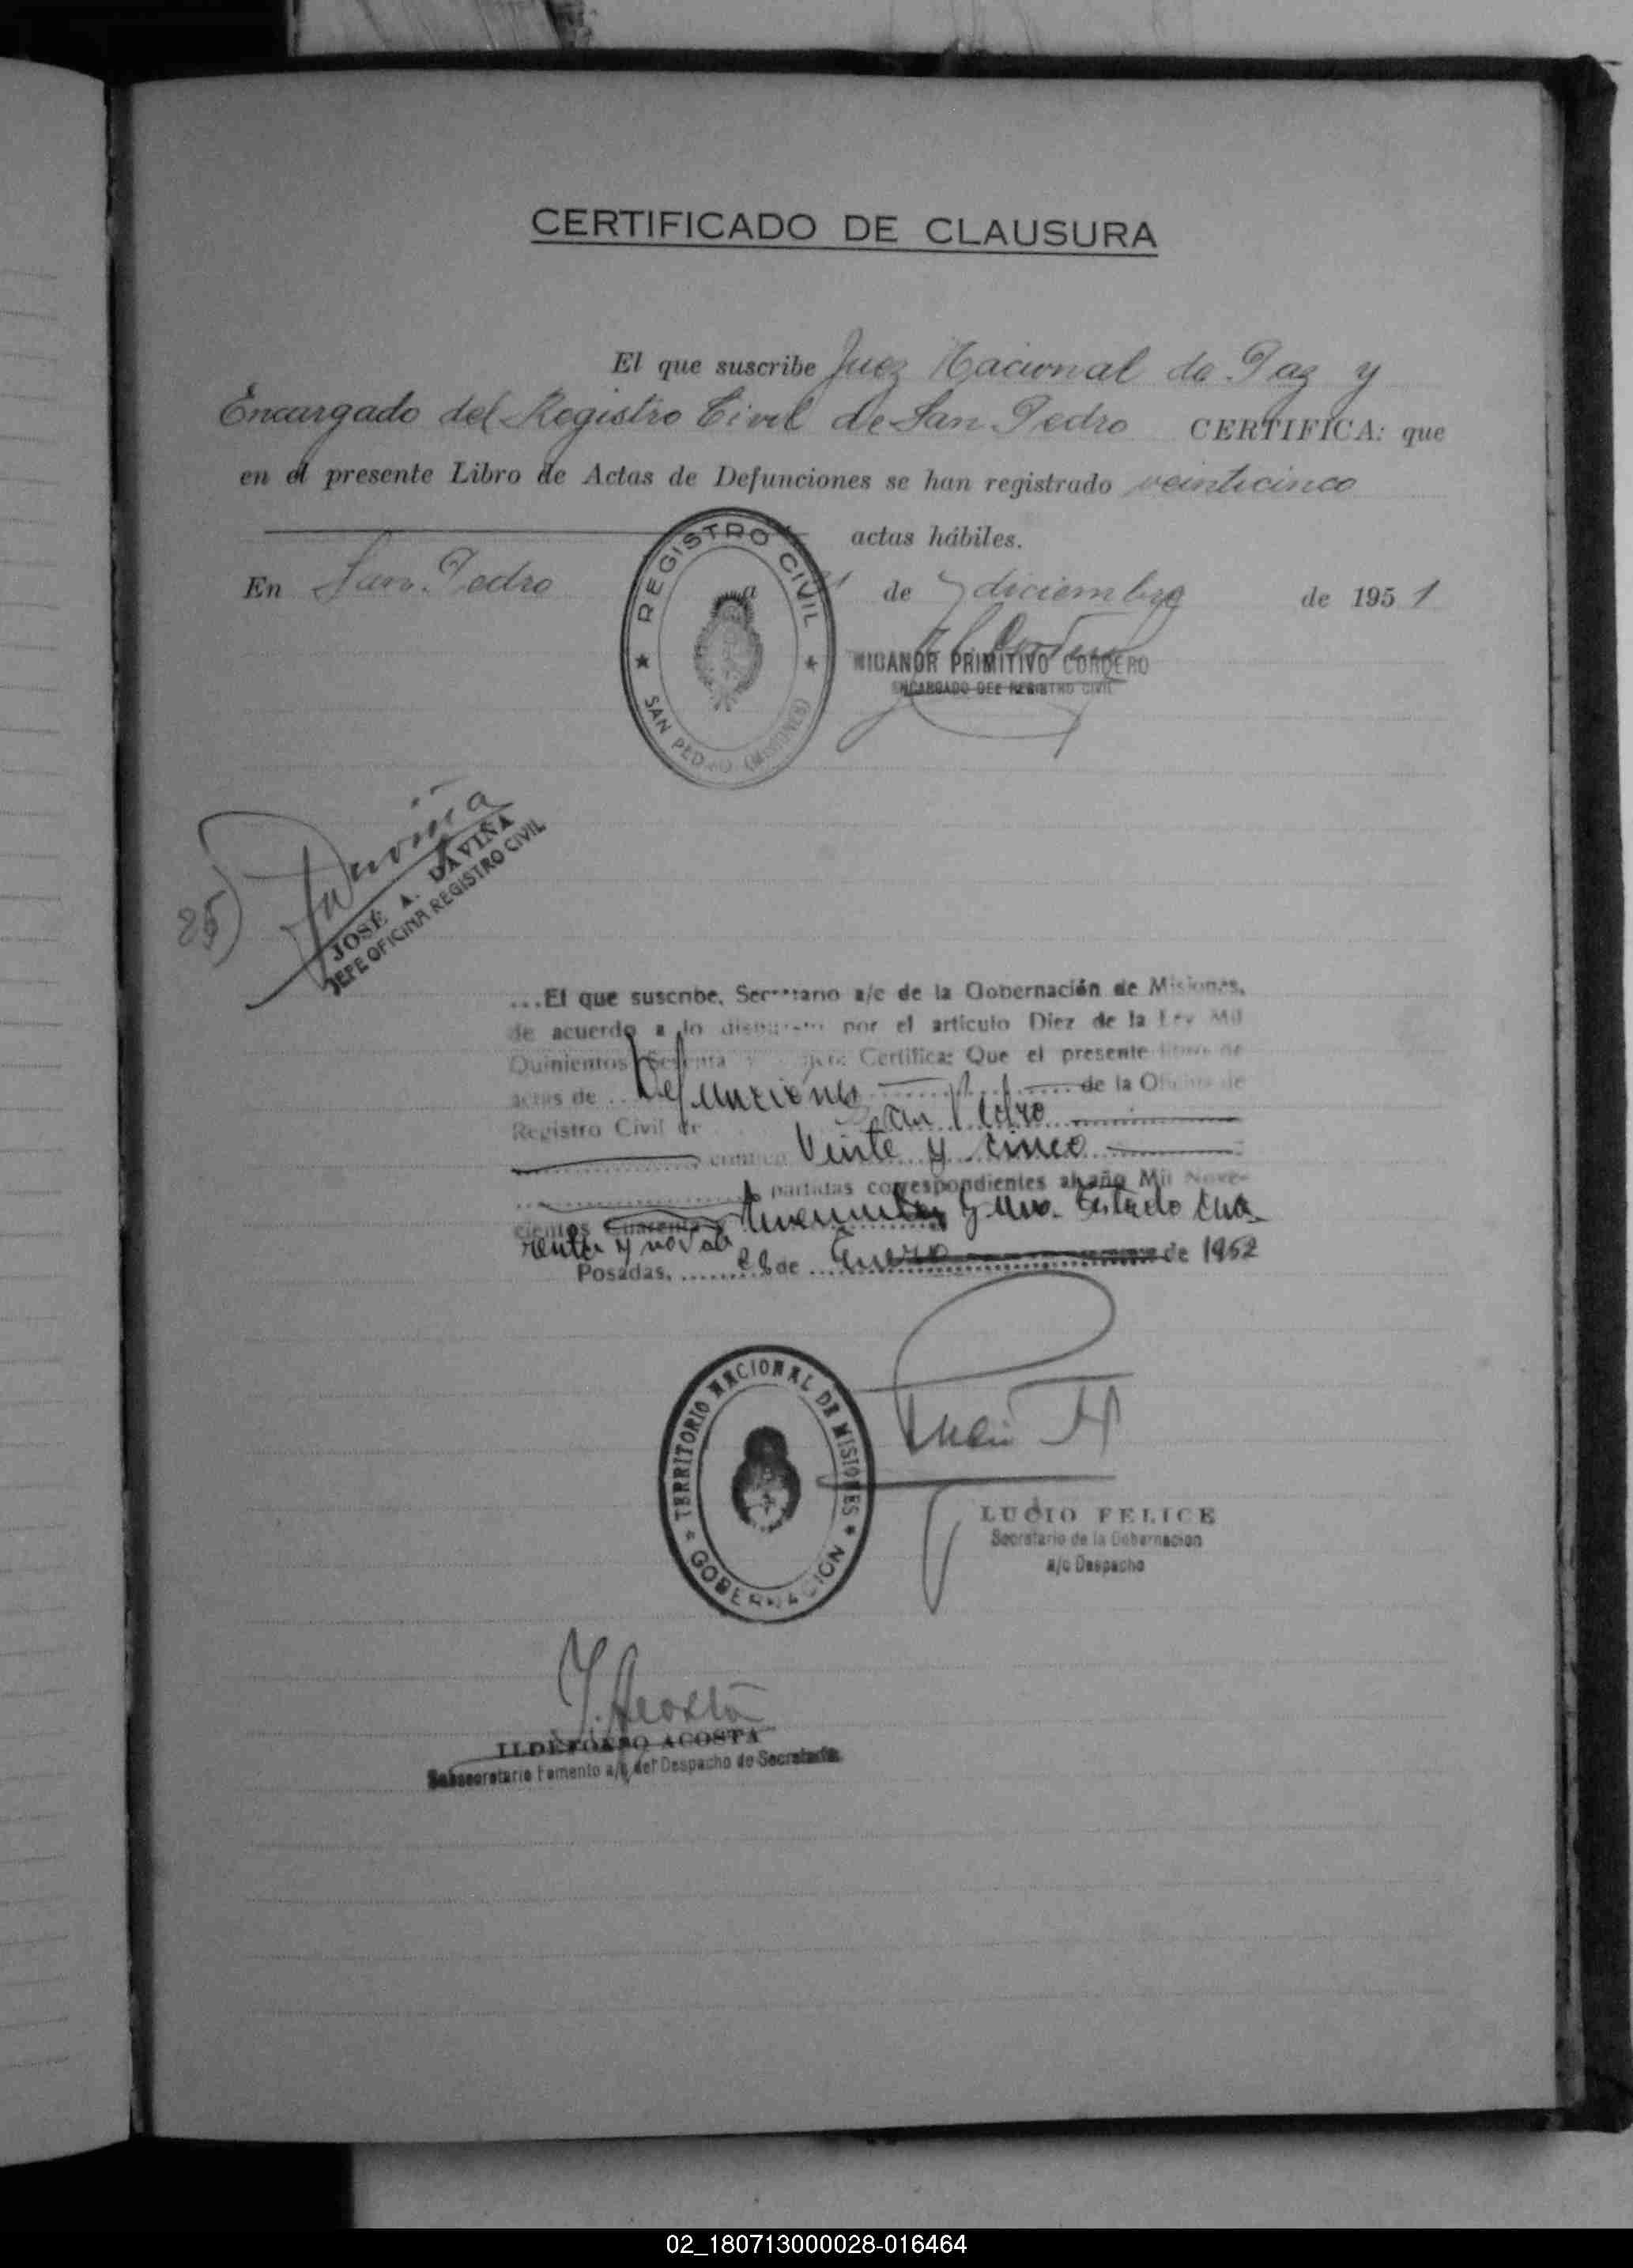 CERTIFICADO DE CLAUSURA
El que suscribe Juez Nacional de Paz y
Encargado del Registro Civil de San Pedro CERTIFICA: que
en el presente Libro de Actas de Defunciones se han registrado veinticinco
actas hábiles.
En San Pedro a 31 de diciembre de 1951
REGISTRO CIVIL
SAN PEDRO (MISIONES)
NICANOR PRIMITIVO CORDERO
ENCARGADO DEL REGISTRO CIVIL
25)
Daviña
JOSÉ A. DAVIÑA
JEFE OFICINA REGISTRO CIVIL
...El que suscribe, Secretario a/c de la Gobernación de Misiones,
de acuerdo a lo dispuesto por el artículo Diez de la Ley Mil
Quinientos Sesenta y Certifica: Que el presente libro de
actas de Defunciones de la Oficina de
Registro Civil de San Pedro
Veinte y cinco
partidas correspondientes al año Mil Nove-
cientos Cuarenta y cincuenta y uno. Testado cua-
renta y no vale
Posadas, 28 de Enero de 1952
TERRITORIO NACIONAL DE MISIONES
GOBERNACION
LUCIO FELICE
Secretario de la Gobernacion
a/c Despacho
I. Acosta
ILDEFONSO ACOSTA
Subsecretario Fomento a/c del Despacho de Secretaría
02_180713000028-016464